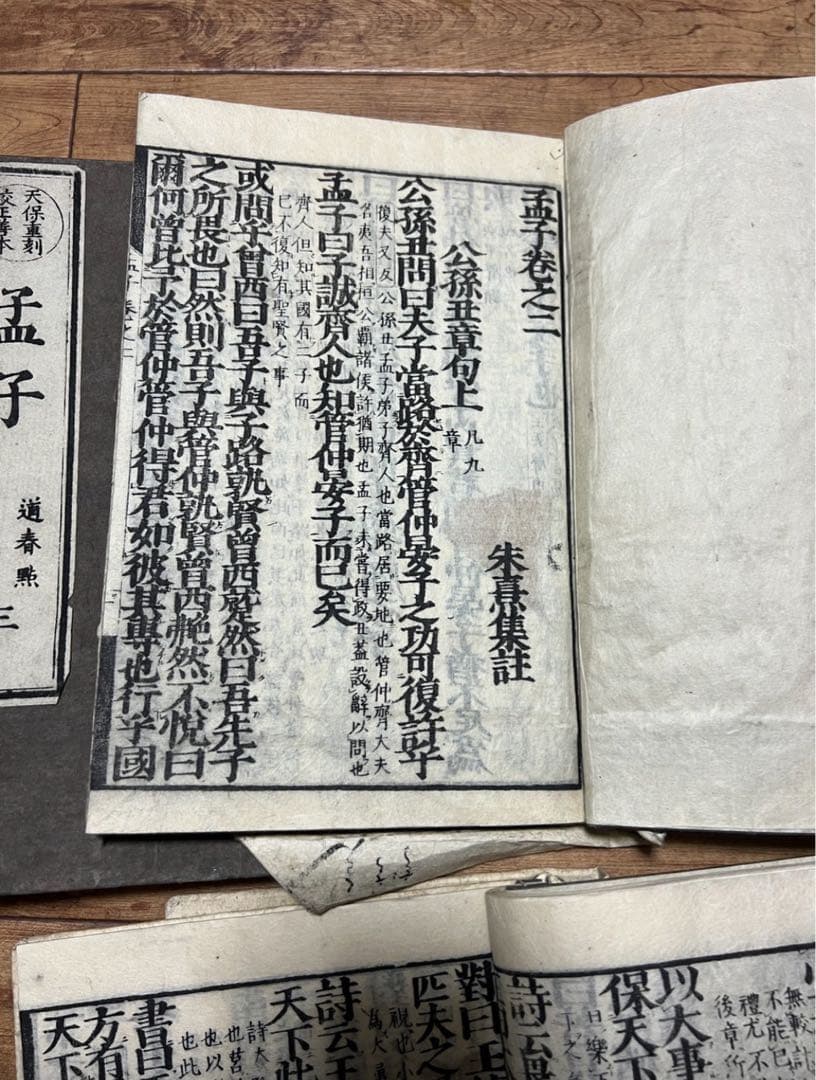 孟子卷之二
公孫丑章句上
凡九
章
朱熹集註
公孫丑問曰夫子當路於齊管仲晏子之功可復許乎
復夫又反公孫丑孟子弟子齊人也當路居要地也管仲齊大夫
名夷吾相桓公霸諸侯許猶期也孟子未嘗得政丑蓋設辭以問也
孟子曰子誠齊人也知管仲晏子而已矣
齊人但知其國有二子而
已不復知有聖賢之事
或問乎曾西曰吾子與子路孰賢曾西蹵然曰吾先子
之所畏也曰然則吾子與管仲孰賢曾西艴然不悅曰
爾何曾比予於管仲管仲得君如彼其專也行乎國
孟子 卷之二
天保重刻
校正善本
孟子
道春點
三
無較計
不能已
禮尤不
後章所
以大事
保天下
曰樂
下之
詩云
對曰王
匹夫之
視也小
為大
詩云王
天下此
詩大
也莒
也以
也此
書曰
方有
天下